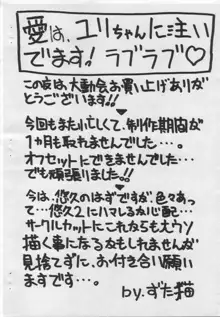 愛は、ユリちゃんに注い
でます！ラブラブ♡
この度は、大動会お買い上げありが
とうございます!!
今回もまた忙しくて、制作期間が
1ヵ月も取れませんでした…。
オフセットにできませんでした…
でも頑張りました!!
今は、悠久のはずですが、色々あ
って…悠久2にハマれるか心配…
サークルカットにこれからも大ウソ
描く事になるかもしれませんが
見捨てずに、お付き合い願い
ます です…。
by.ずた猫